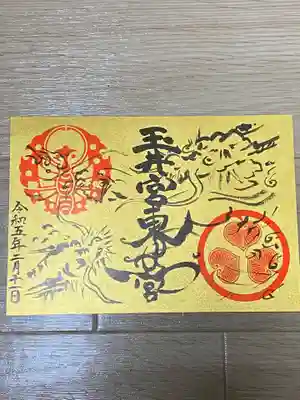 玉井宮東照宮
令和五年二月十一日